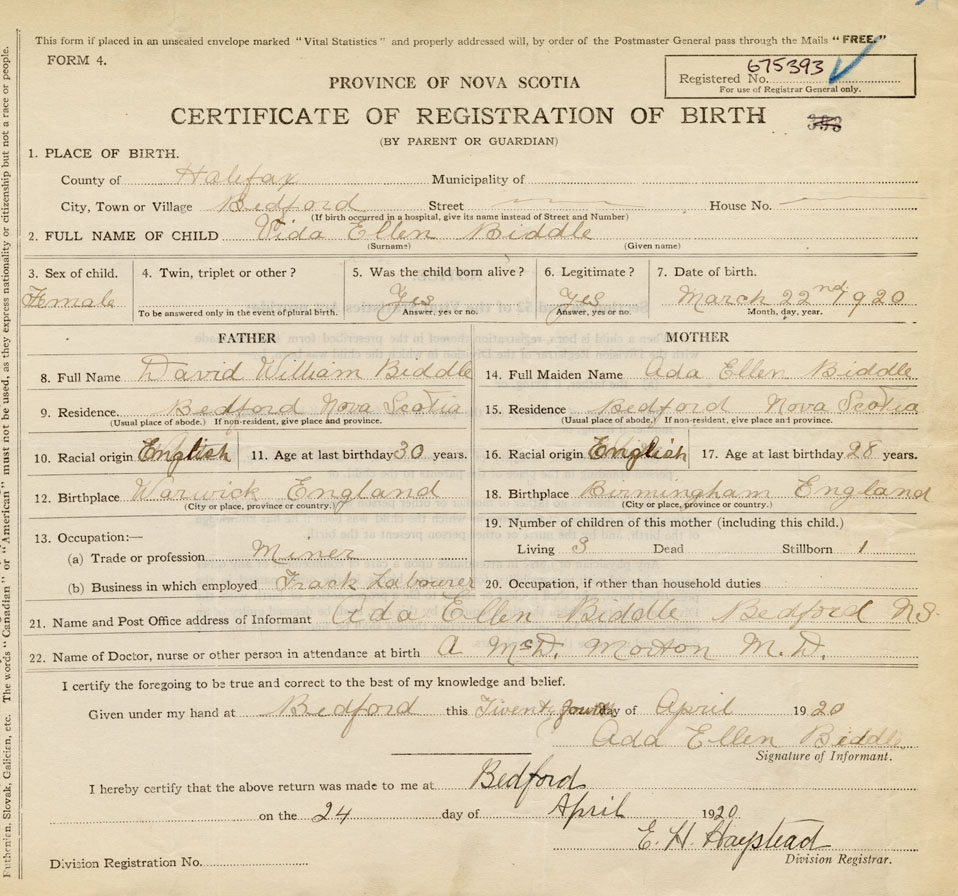 This form if placed in an unsealed envelope marked "Vital Statistics" and properly addressed will, by order of the Postmaster General pass through the Mails "FREE."
FORM 4.
Registered No. 675393
For use of Registrar General only.
PROVINCE OF NOVA SCOTIA
CERTIFICATE OF REGISTRATION OF BIRTH
(BY PARENT OR GUARDIAN)
1. PLACE OF BIRTH.
County of Halifax Municipality of
City, Town or Village Bedford Street House No.
(If birth occurred in a hospital, give its name instead of Street and Number)
2. FULL NAME OF CHILD Vida Ellen Biddle
(Surname) (Given name)
3. Sex of child. 4. Twin, triplet or other? 5. Was the child born alive? 6. Legitimate? 7. Date of birth.
Female Yes Yes March 22nd 1920
To be answered only in the event of plural birth. Answer, yes or no. Answer, yes or no. Month, day, year.
FATHER MOTHER
8. Full Name David William Biddle 14. Full Maiden Name Ada Ellen Biddle
9. Residence. Bedford Nova Scotia 15. Residence Bedford Nova Scotia
(Usual place of abode.) If non-resident, give place and province. (Usual place of abode.) If non-resident, give place and province.
10. Racial origin English 11. Age at last birthday 30 years. 16. Racial origin English 17. Age at last birthday 28 years.
12. Birthplace Warwick England 18. Birthplace Birmingham England
(City or place, province or country.) (City or place, province or country.)
13. Occupation:— 19. Number of children of this mother (including this child.)
(a) Trade or profession Miner Living 3 Dead Stillborn 1
(b) Business in which employed Track Labourer 20. Occupation, if other than household duties
21. Name and Post Office address of Informant Ada Ellen Biddle Bedford NS.
22. Name of Doctor, nurse or other person in attendance at birth A McD. Morton M.D.
I certify the foregoing to be true and correct to the best of my knowledge and belief.
Given under my hand at Bedford this Twenty fourth day of April 1920
Ada Ellen Biddle
Signature of Informant.
I hereby certify that the above return was made to me at Bedford
on the 24 day of April 1920
E. H. Haystead
Division Registrar.
Division Registration No.
Ruthenian, Slovak, Galician, etc. The words "Canadian" or "American" must not be used, as they express nationality or citizenship but not a race or people.